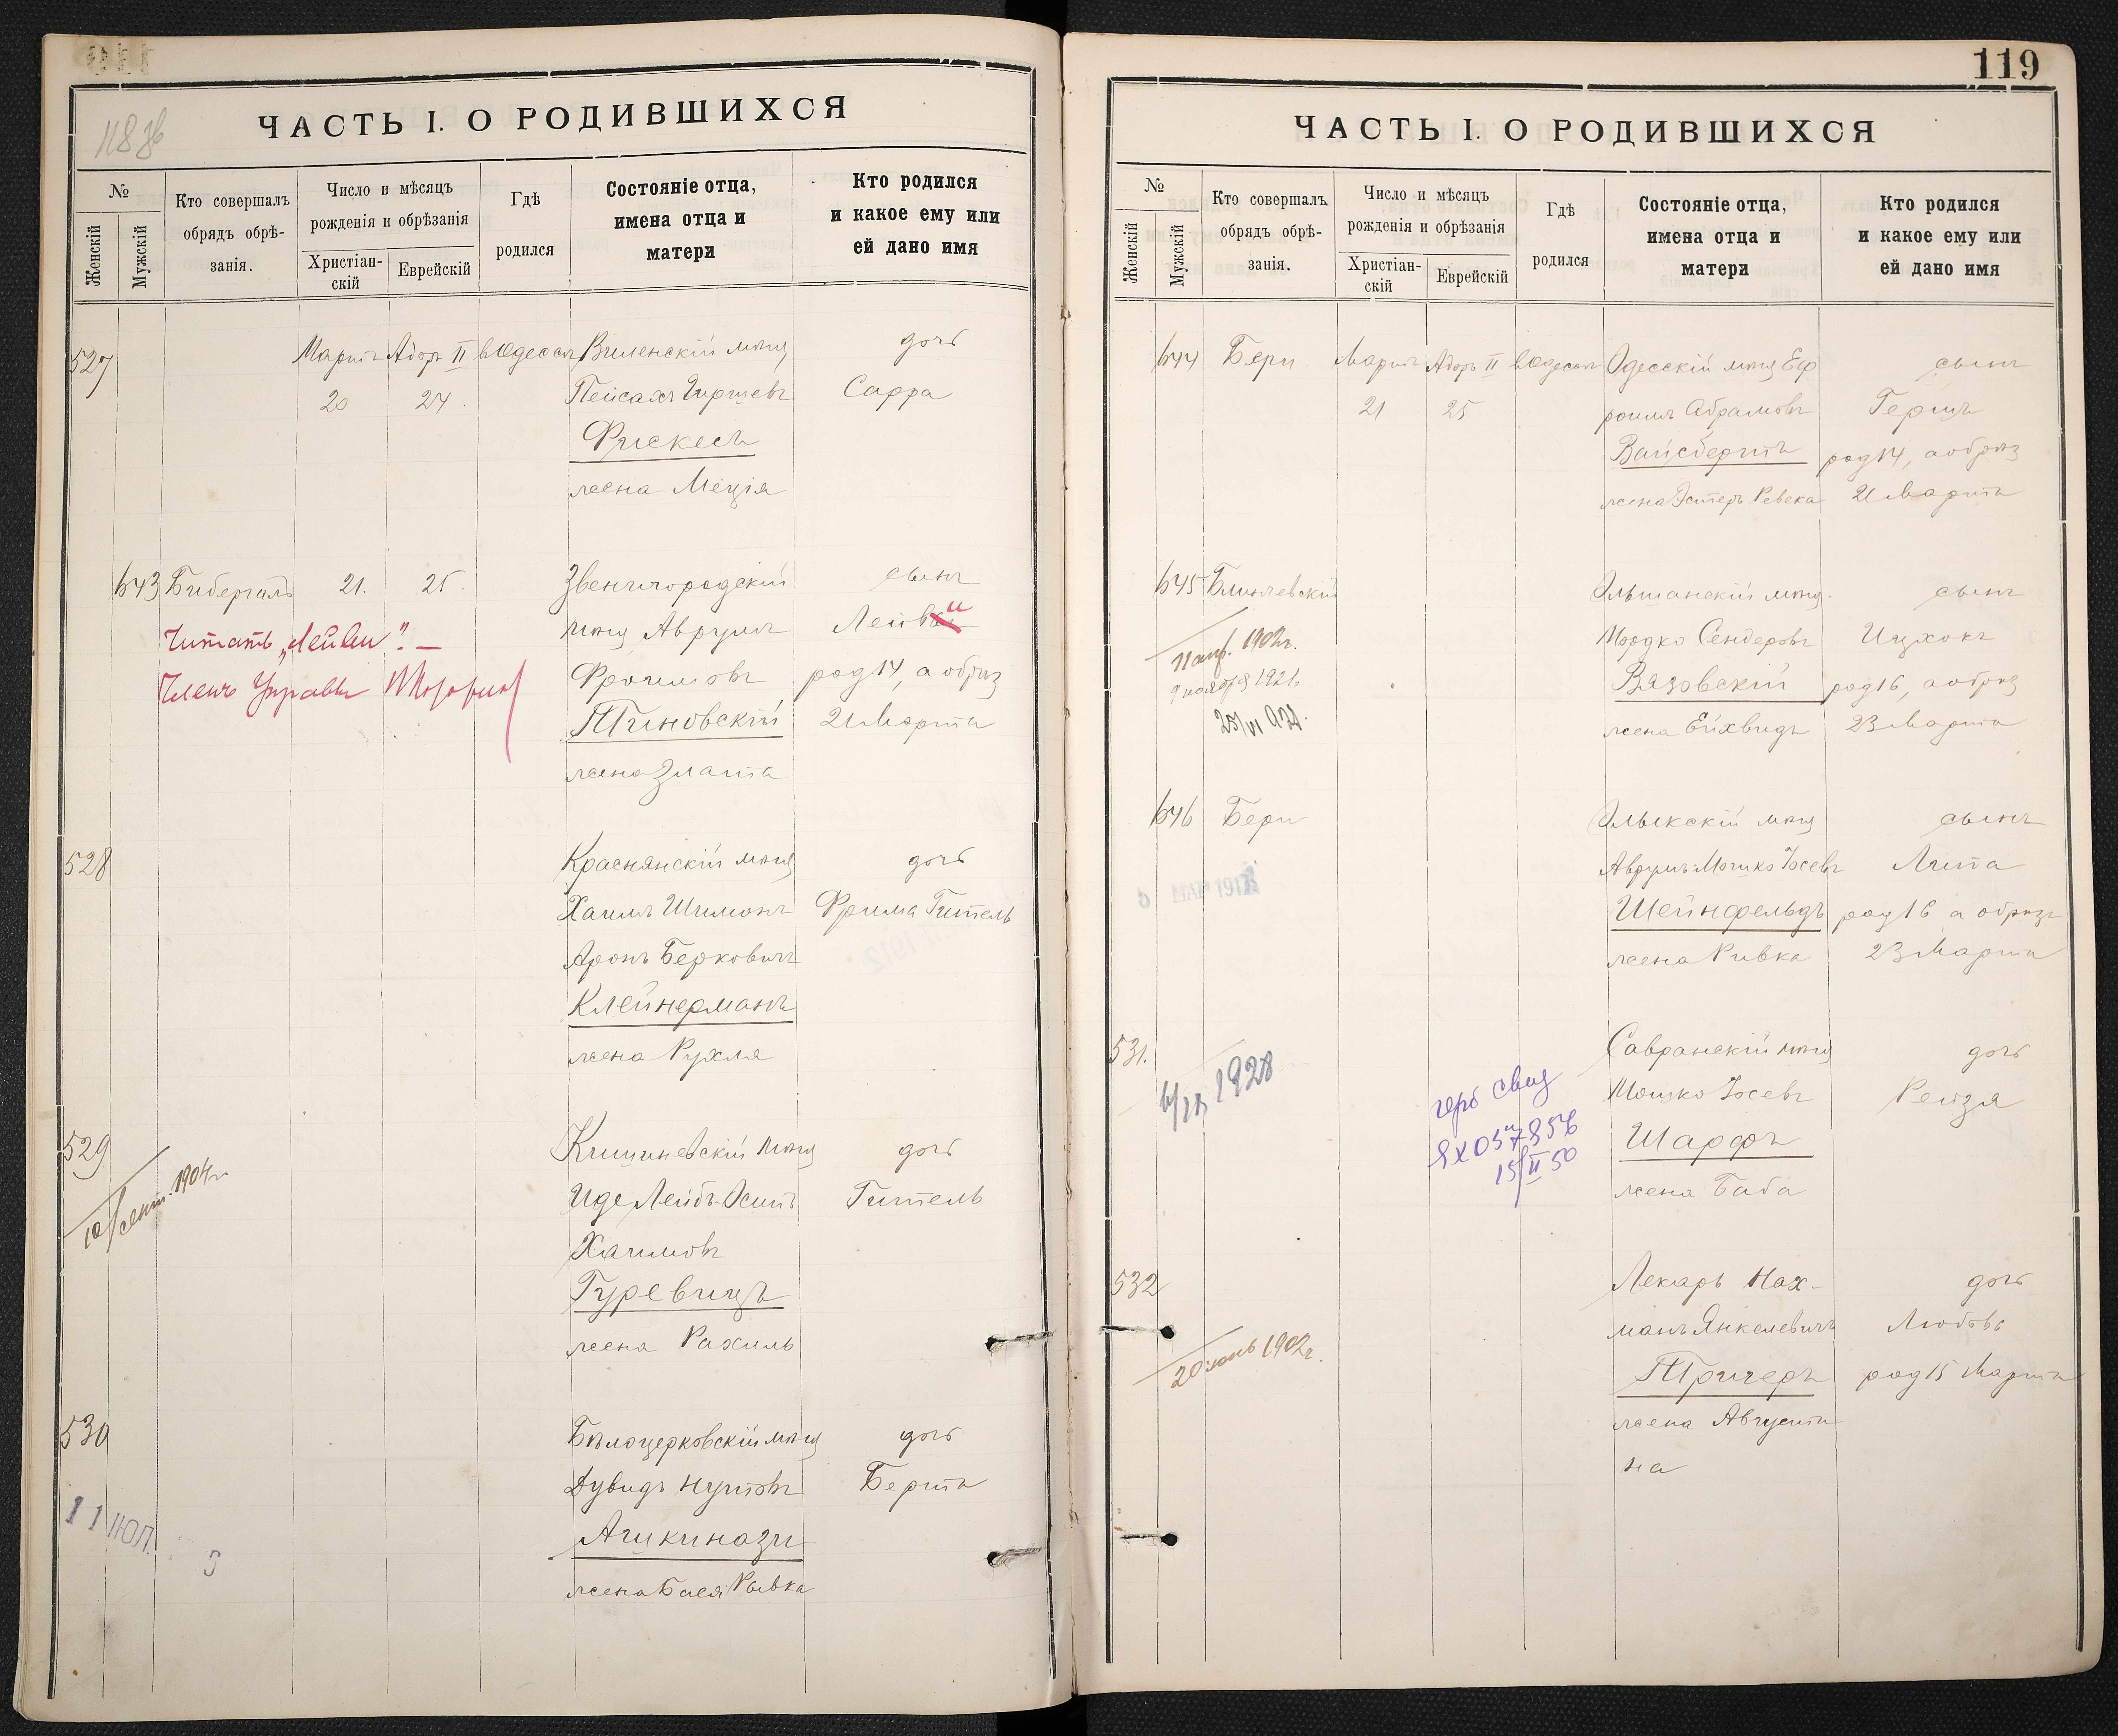 118 об
ЧАСТЬ I. О РОДИВШИХСЯ
№
Женскій
Мужскій
Кто совершалъ
обрядъ обрѣ-
занія.
Число и мѣсяцъ
рожденія и обрѣзанія
Христіан-
скій
Еврейскій
Гдѣ
родился
Состояніе отца,
имена отца и
матери
Кто родился
и какое ему или
ей дано имя
527 Мартъ Адоръ II въ Одессѣ Виленскій мѣщ дочь
20 24 Пейсахъ Гиршевъ Сарра
Фискесъ
жена
643 21. 25 Звенигородскій сынъ
Читать „Лейви". — мѣщ Аврумъ Лейви
Членъ Управы Фроимовъ род 14, а обрѣз
Тиновскій 21 Марта
жена Злата
528 Краснянскій мѣщ дочь
Хаимъ Шимонъ Фрима Гитель
Аронъ Берковичъ
Клейнерманъ
жена Рухля
529 Кишиневскій мѣщ дочь
10/сент. 1904г Иде Лейбъ Хаимовъ Гитель
Гуревицъ
жена Рахиль
530 Бѣлоцерковскій мѣщ дочь
Дувидъ Нутовъ Берта
Ашкинази
11 ІЮЛ.
жена Бася Рывка
119
ЧАСТЬ I. О РОДИВШИХСЯ
№
Женскій
Мужскій
Кто совершалъ
обрядъ обрѣ-
занія.
Число и мѣсяцъ
рожденія и обрѣзанія
Христіан-
скій
Еврейскій
Гдѣ
родился
Состояніе отца,
имена отца и
матери
Кто родился
и какое ему или
ей дано имя
644 Бери Мартъ Адоръ II въ Одессѣ Одесскій мѣщ Еф сынъ
21 25 роимъ Абрамовъ Герцъ
Вайсбергъ род 14, а обрѣз
жена Эстеръ Ревека 21 Марта
645 Ольшанскій мѣщ. сынъ
1902г. Мордко Сендеровъ Ицхокъ
9 ноября 1921г Вязовскій род 16, а обрѣз
25/VI жена Ейхвидъ 23 Марта
646 Бери Олыкскій мѣщ сынъ
Аврумъ Мошко Іосевъ Липа
Шейнфельдъ род 16 а обрѣзъ
жена Ривка 23 Марта
531. Савранскій мѣщ дочь
1928 свид Мошко Іосевъ Рейзя
Шарфъ
15/II 50
жена Баба
532 Лекарь Нах- дочь
манъ Янкелевичъ Любовь
20 1902г. род 15 Марта
жена Августи-
на